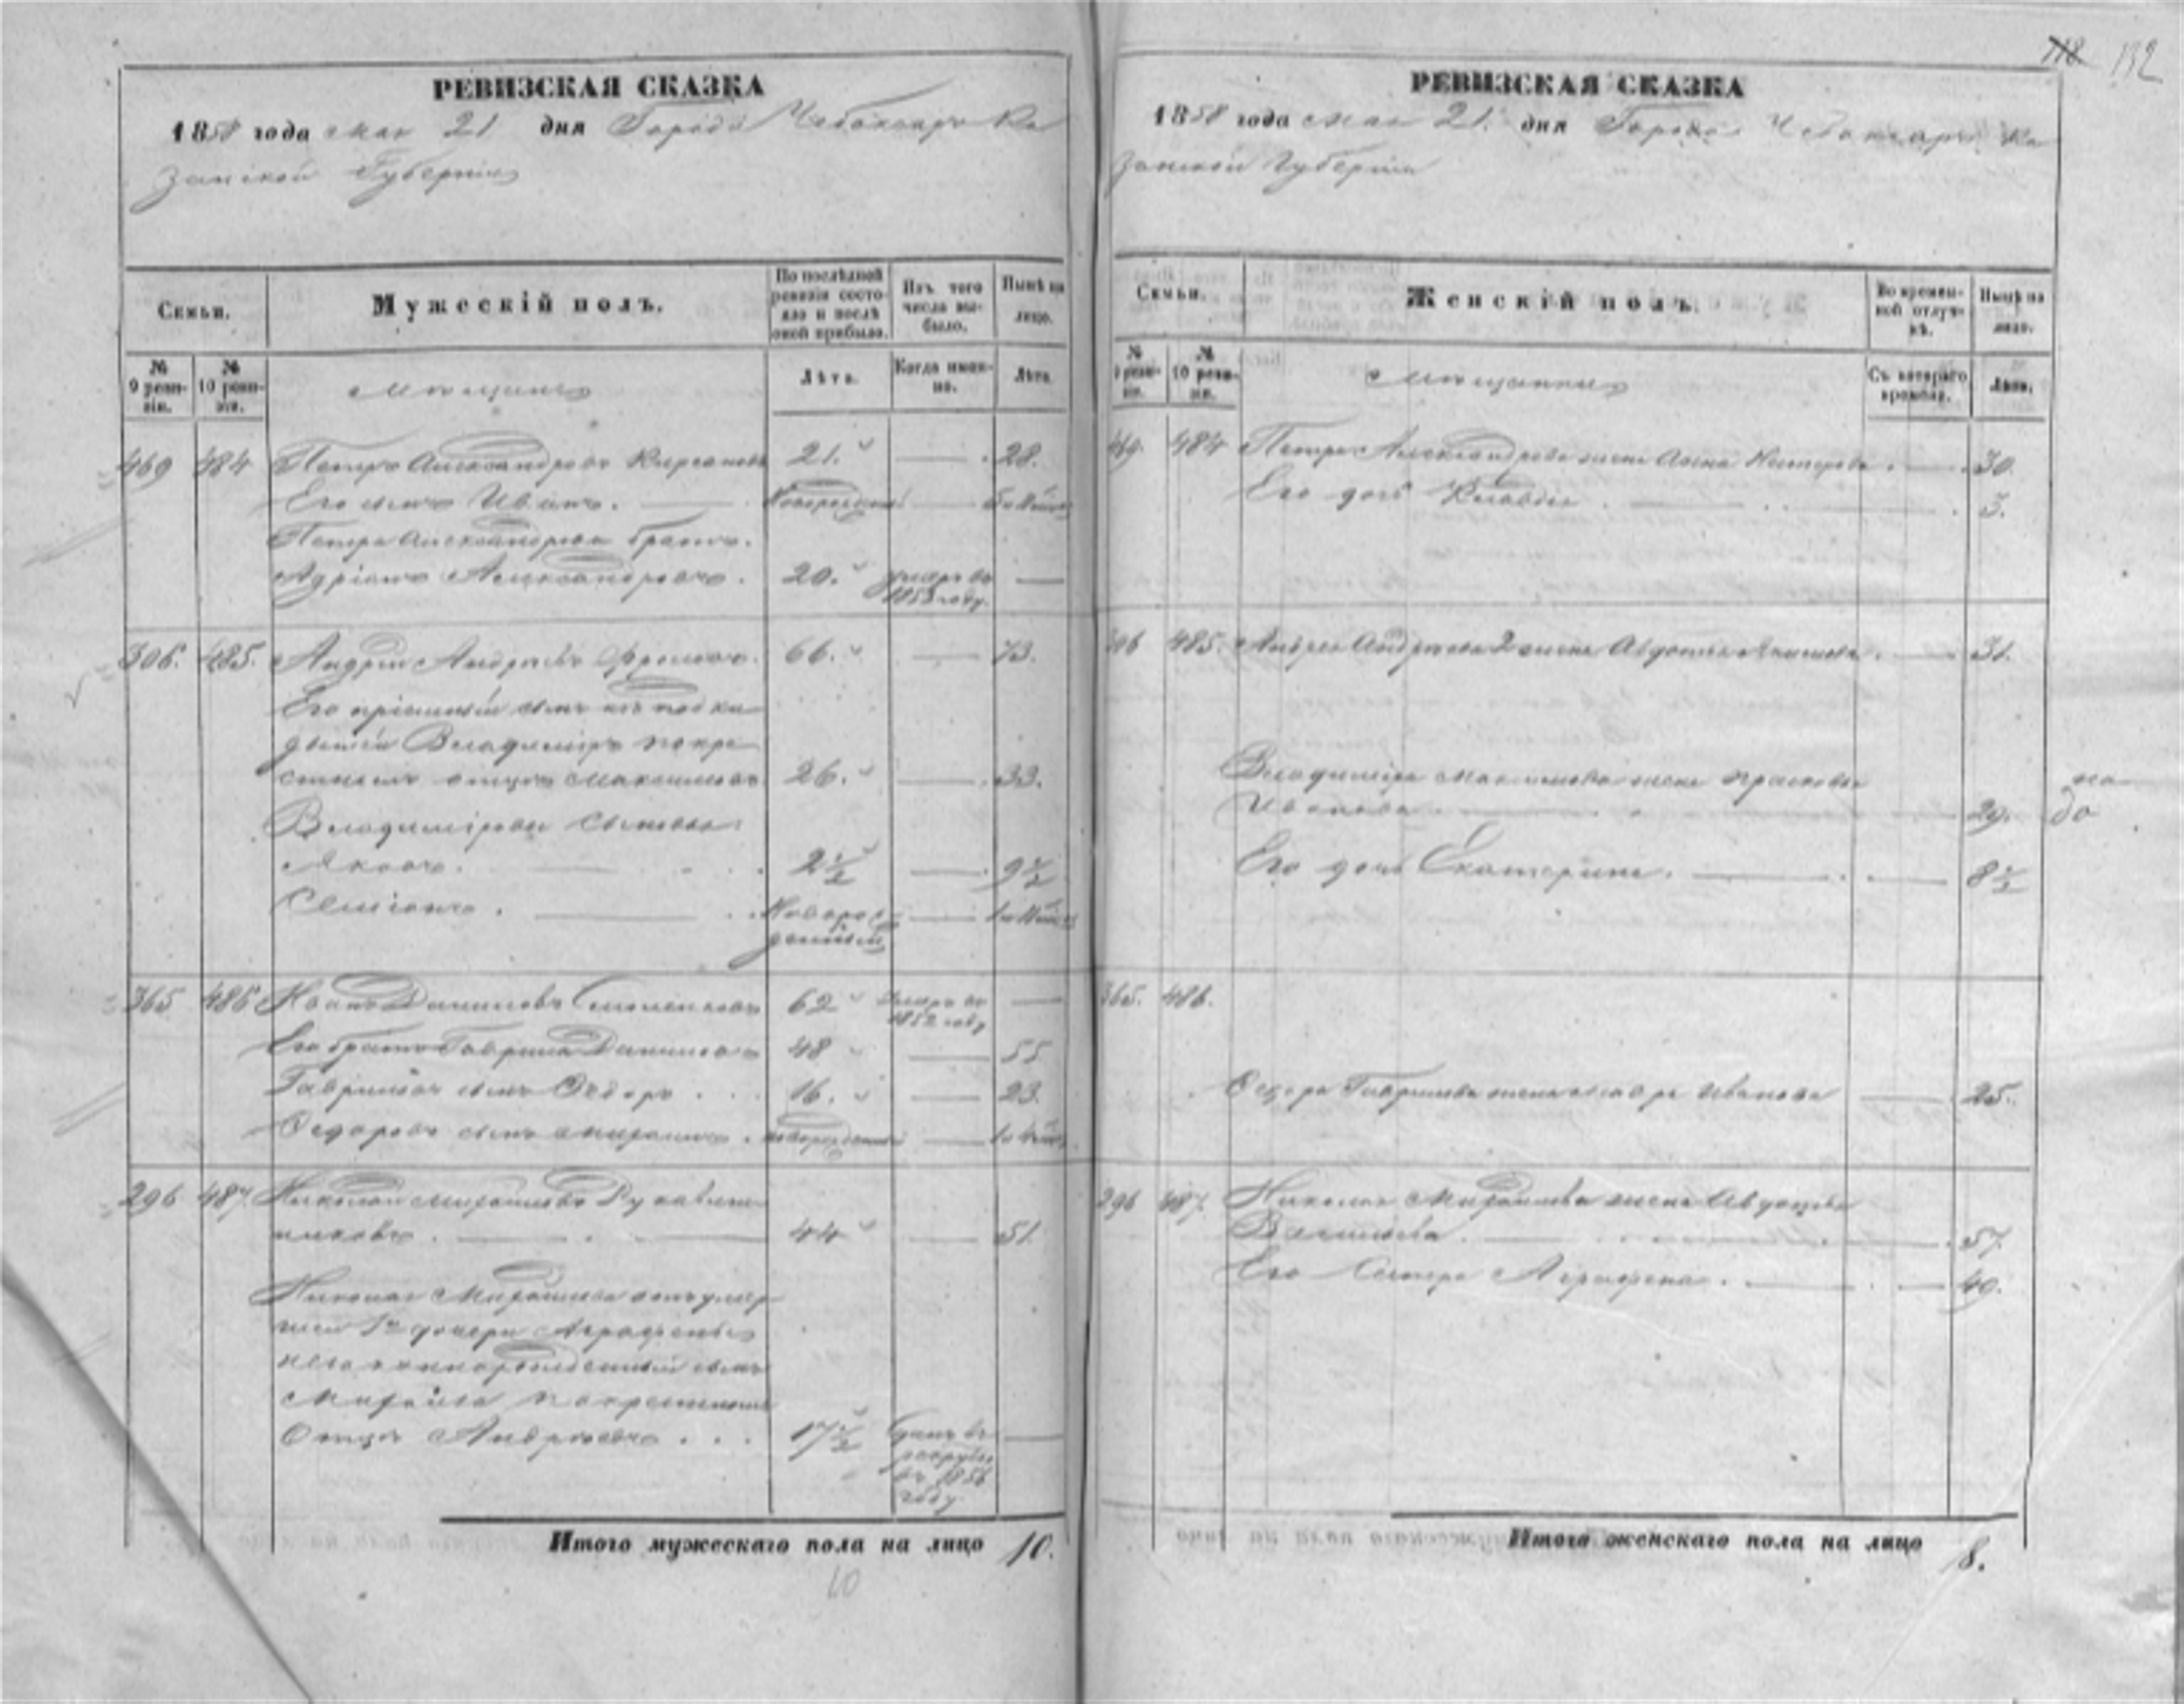 118 132
РЕВИЗСКАЯ СКАЗКА
1858 года мая 21 дня Города Чебоксаръ Ка
занской Губернiи
Семьи.
Мужескiй полъ.
По послѣдней ревизiи состояло и послѣ оной прибыло.
Изъ того числа выбыло.
Нынѣ на лицо.
№ 9 ревизiи.
№ 10 ревизiи.
Мѣщане
Лѣта.
Когда именно.
Лѣта.
469 484 Петръ Александровъ 21. 28.
Его сынъ Иванъ. Новорожденный
Петра Александрова братъ.
Адрiанъ Александровъ. 20. умеръ въ 1853 году.
306. 485. Андрей Андреевъ Фроловъ. 66. 73.
Его прiемный сынъ изъ подки
дышей Владимiръ по кре
стному отцу Максимовъ 26. 33.
Владимiровы сыновья:
Яковъ. 2½ 9½
Новорож
денный
365 486 Иванъ Даниловъ 62 умеръ въ 1852 году
Его братъ Гаврила Даниловъ 48 55
Гаврилы сынъ Ѳедоръ 16. 23.
Ѳедоровъ сынъ новорожденный
296 487. Николай Михайловъ Рукавиш
никовъ. 44 51.
Николая Михайлова
дочери Аграфены
незаконнорожденный сынъ
Михайла по крестному
Отцу Андреевъ . . . 17½ Сданъ въ рекруты въ 1856 году
Итого мужескаго пола на лицо 10.
10
РЕВИЗСКАЯ СКАЗКА
1858 года мая 21. дня Города Чебоксаръ Ка
занской Губернiи
Семьи.
Женскiй полъ.
Во временной отлучкѣ.
Нынѣ на лицо.
№ 9 ревизiи.
№ 10 ревизiи.
Мѣщанки
Съ котораго времени.
Лѣта.
469. 484 Петра Александрова жена Анна Нестерова 30.
Его дочь Клавдiя 3.
306 485. Андрея Андреева 2 жена Авдотья 31.
Владимiра Максимова жена Прасковья
Иванова 29.
Его дочь Екатерина. 8½
на
до
365. 486.
Ѳедора Гаврилова жена Иванова 25.
296 487. Николая Михайлова жена Авдотья
Васильева. 57.
Его Сестра Аграфена. 40.
Итого женскаго пола на лицо 8.